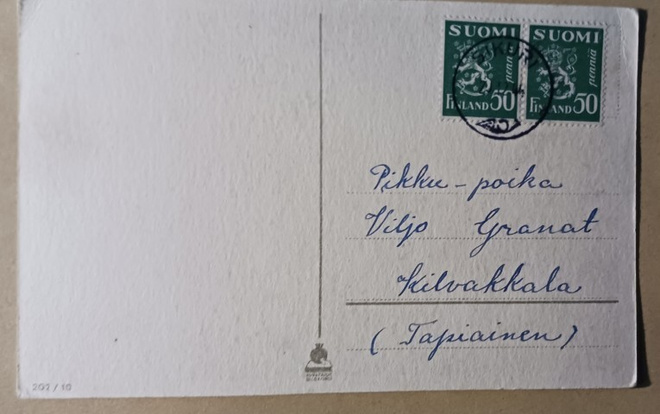 SUOMI SUOMI
penniä penniä
FINLAND 50 FINLAND 50
Pikku-poika
Viljo Granat
Kilvakkala
(Tapiainen)
202/10